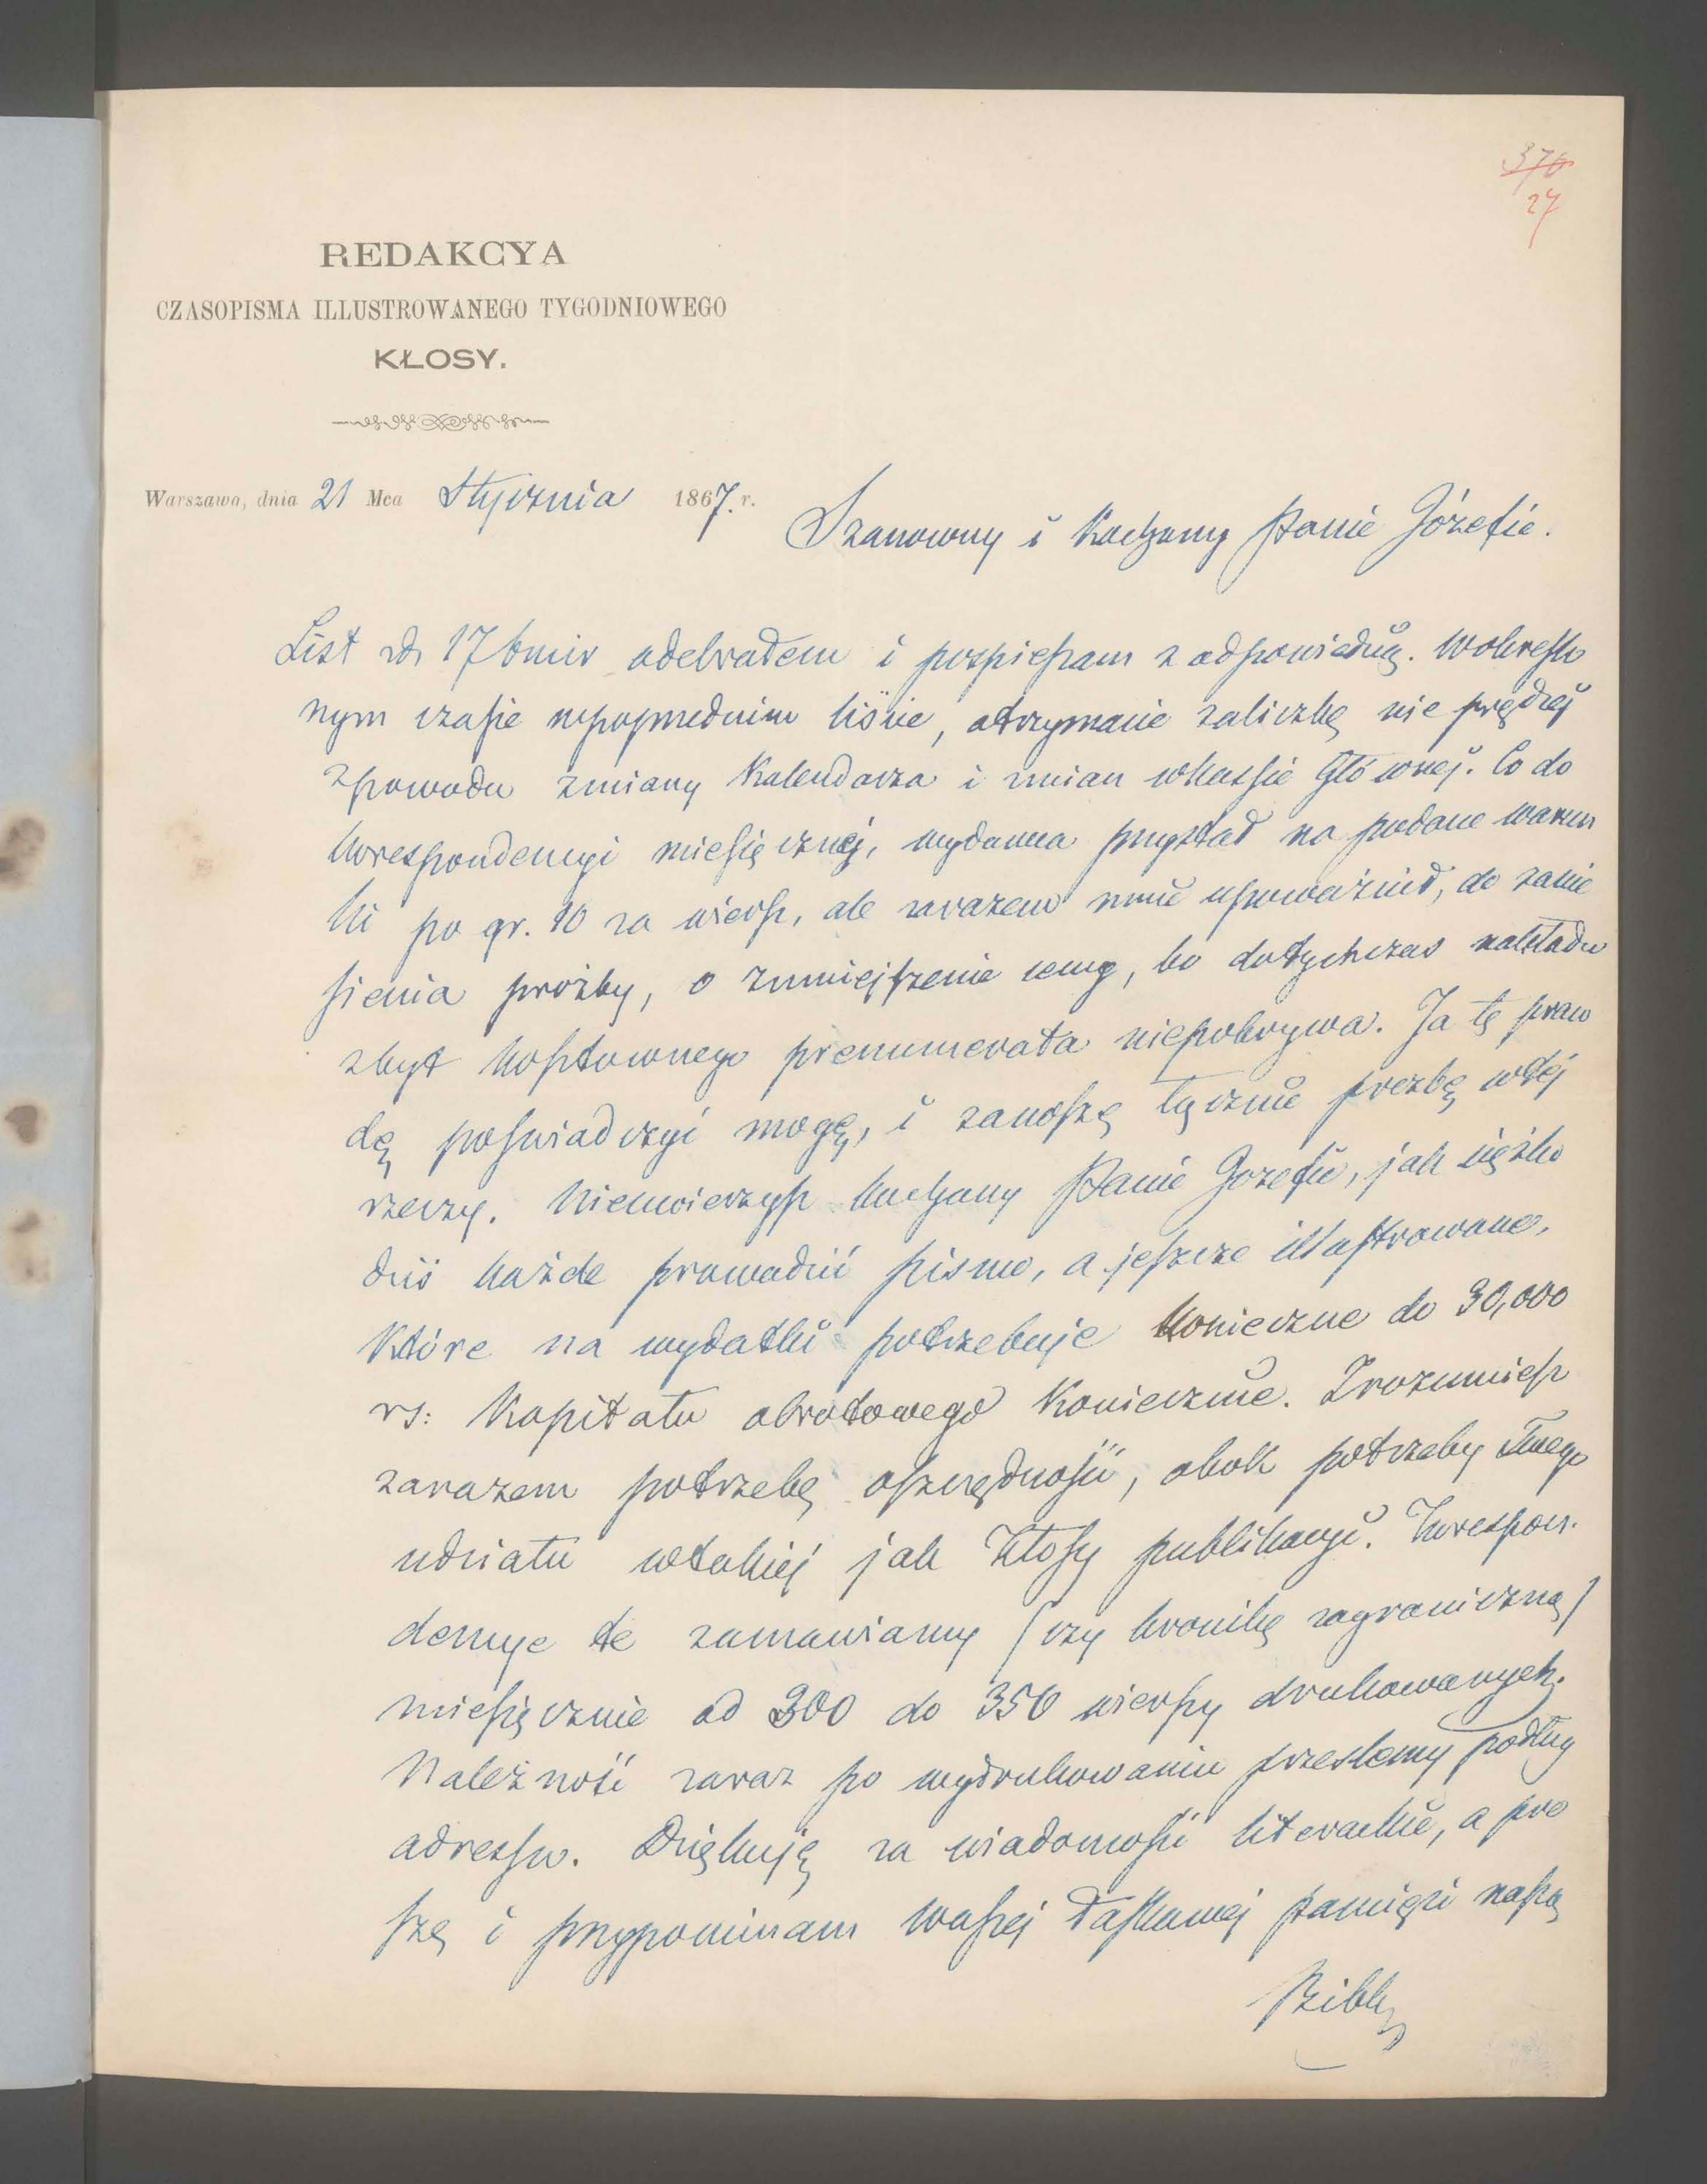 370
27
REDAKCYA
CZASOPISMA ILLUSTROWANEGO TYGODNIOWEGO
KŁOSY.
Warszawa, dnia 21 Mca Stycznia 1867. r.
Szanowny i Kochany Panie Józefie.
List 17 odebrałem i pospieszam z odpowiedzią. Wokreślo
nym czasie wpoprzednim liście, otrzymacie zaliczkę nie prędzéj
zpowodu zmiany Kalendarza i zmian wkassie Głównej. Co do
korespondencyi miesięcznéj, wydawca przystał na podane warun
ki po gr. 10 za wiersz, ale zarazem mnie upoważnił, do zanie
sienia prożby, o zmniejszenie ceny, bo dotychczas nakładu
zbyt kosztownego prenumerata niepokrywa. Ja tę praw
dę poświadczyć mogę, i zanoszę łącznie prożbę wtéj
rzeczy. Nieuwierzysz kochany Panie Jozefie, jak ciężko
dziś każde prowadzić pismo, a jeszcze illustrowane,
które na wydatki potrzebuje konieczne do 30,000
rs: Kapitału obrotowego koniecznie. Zrozumiesz
zarazem potrzebę oszczędności, obok potrzeby Twego
udziału wtakiéj jak Kłosy publikacyi. Korespon.
dencye te zamawiamy (czy kronikę zagraniczną)
miesięcznie od 300 do 350 wierszy drukowanych.
Należność zaraz po wydrukowaniu prześlemy podług
adressu. Dziękuję za wiadomości literackie, a pro
szę i przypominam waszéj łaskawéj pamięci naszą
Bibl